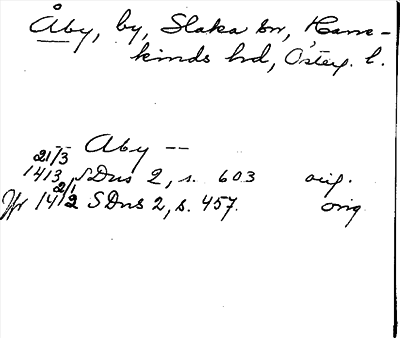 Åby, by, Slaka sn, Hane-
kinds hd, Östergötl. l.
-- Aby --
21/3
1413, SDns 2, s. 603 orig.
Jfr 14 2/1 12 SDns 2, s. 457. orig